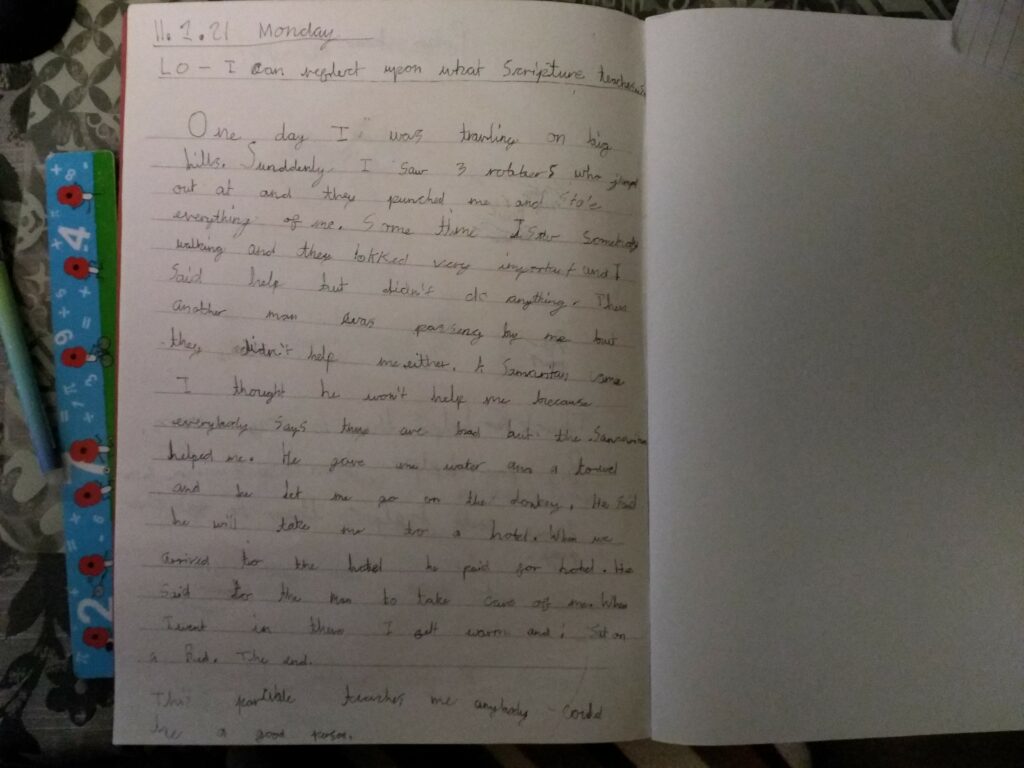 11.1.21 Monday
LO - I can reflect upon what Scripture teaches us
One day I was travling on big
hills. Sunddenly I saw 3 robbers who jumped
out at and they punched me and stole
everything of me. Some time I saw somebody
walking and they lokked very important and I
said help but didn't do anything. Then
another man was passing by me but
they didn't help me either. A Samaritan came
I thought he won't help me because
everybody says they are bad but the Samaritan
helped me. He gave me water and a towel
and he let me go on the donkey. He said
he will take me to a hotel. When we
arrived to the hotel he paid for hotel. He
said to the man to take care of me. When
I went in there I felt warm and I sat on
a Bed. The end.
This parible teaches me anybody could
be a good person.
2 4 6 7